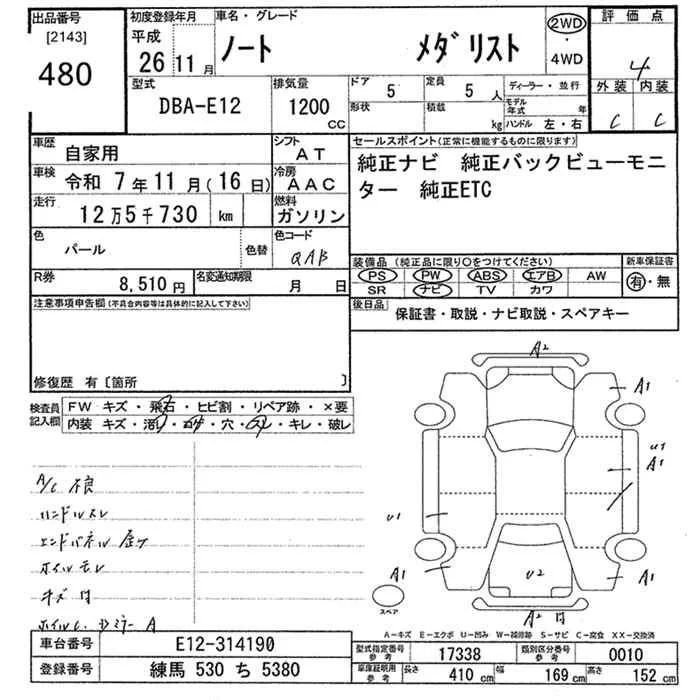 出品番号 初度登録年月 車名・グレード 評価点
[2143] 平成
480 26 11月 ノート メダリスト 2WD 4WD 4
型式 排気量 ドア 5 定員 5人 ディーラー・並行 外装 内装
DBA-E12 1200cc 形状 積載 kg モデル年式 年 ハンドル 左・右 C C
車歴 自家用 シフト AT セールスポイント(正常に機能するものに限ります)
車検 令和 7年11月(16日) 冷房 AAC 純正ナビ 純正バックビューモニ
走行 12万5千730 km 燃料 ガソリン ター 純正ETC
色 パール 色替 色コード QAB
装備品(純正品に限り○をつけてください) 新車保証書
R券 8,510円 名変通知期限 月 日 PS PW ABS エアB AW 有・無
SR ナビ TV カワ
注意事項申告欄(不具合内容等は具体的に記入して下さい) 後日品 保証書・取説・ナビ取説・スペアキー
修復歴 有〔箇所 〕
検査員記入欄 FW キズ・飛石・ヒビ割・リペア跡・×要
内装 キズ・汚レ・コゲ・穴・スレ・キレ・破レ
A2
A1
U1
A1
A/C 不良
ハンドルスレ
U1
エンドパネル 歪ケ
ホイルモレ
A1 U2 A1
キズ 凹
スペア
A2 凹
ホイルC. Dミラー A
A-キズ E-エクボ U-凹み W-補修跡 S-サビ C-腐食 XX-交換済
車台番号 E12-314190 型式指定番号 参考 17338 類別区分番号 参考 0010
登録番号 練馬 530 ち 5380 車庫証明用 参考 長さ 410cm 幅 169cm 高さ 152cm